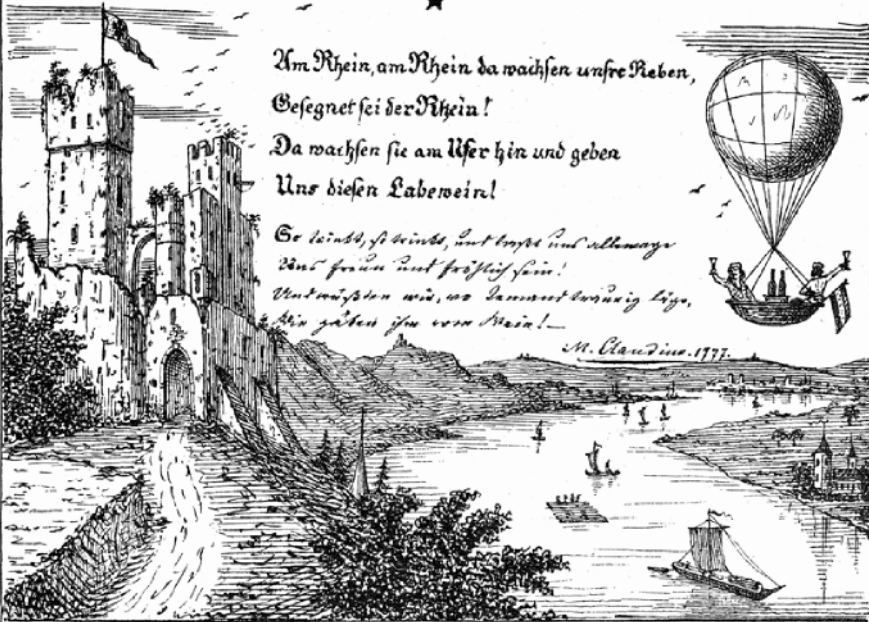 Am Rhein, am Rhein da wachsen unsre Reben,
Gesegnet sei der Rhein!
Da wachsen sie am Ufer hin und geben
Uns diesen Labewein!
So trinkt, so trinkt, und laßt uns allewege
Uns freun und fröhlich sein!
Und wüßten wir, wo Jemand traurig läge,
Wir gäben ihm vom Wein! —
M. Claudius. 1777.